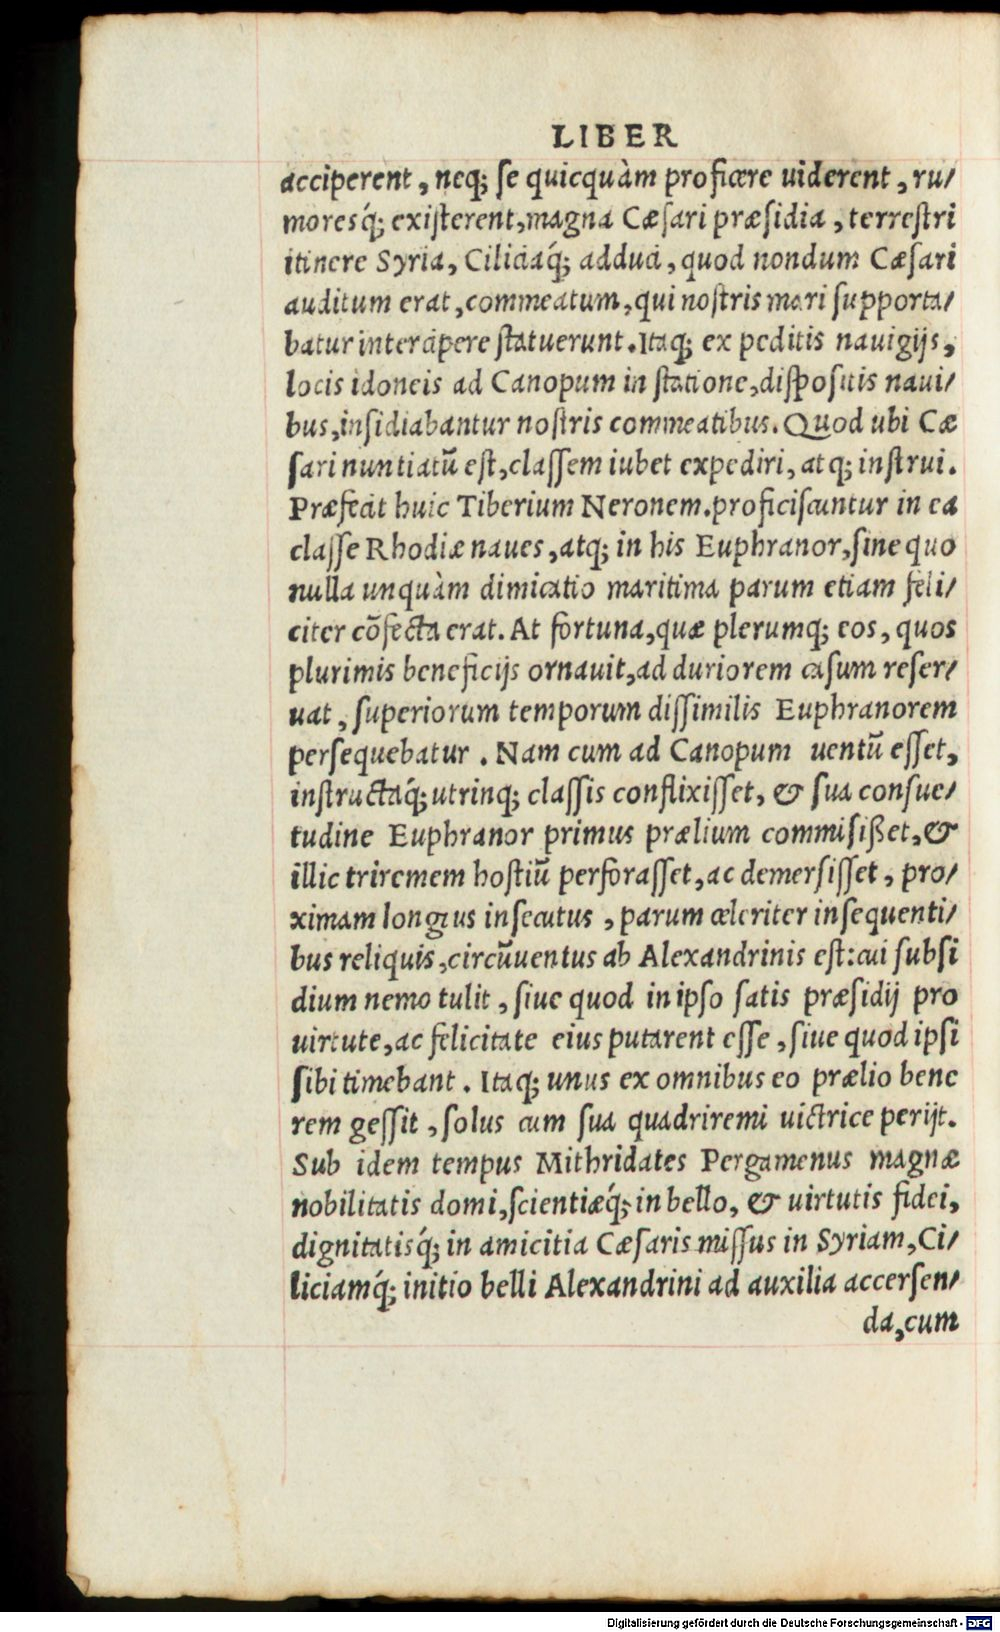 LIBER
acciperent, neq; se quicquàm proficere uiderent, ru/
moresq́; existerent, magna Cæsari præsidia, terrestri
itinere Syria, Ciliciaq́; adduci, quod nondum Cæsari
auditum erat, commeatum, qui nostris mari supporta/
batur intercipere statuerunt. Itaq; ex peditis nauigijs,
locis idoneis ad Canopum in statione, dispositis naui/
bus, insidiabantur nostris commeatibus. Quod ubi Cæ
sari nuntiatũ est, classem iubet expediri, atq; instrui.
Præfecit huic Tiberium Neronem. proficiscuntur in ea
classe Rhodiæ naues, atq; in his Euphranor, sine quo
nulla unquàm dimicatio maritima parum etiam feli/
citer cõfecta erat. At fortuna, quæ plerumq; eos, quos
plurimis beneficijs ornauit, ad duriorem casum reser/
uat, superiorum temporum dissimilis Euphranorem
persequebatur. Nam cum ad Canopum uentũ esset,
instructaq́; utrinq; classis conflixisset, & sua consue/
tudine Euphranor primus prælium commisißet, &
illic triremem hostiũ perforasset, ac demersisset, pro/
ximam longius insecutus, parum celeriter insequenti/
bus reliquis, circũuentus ab Alexandrinis est: cui subsi
dium nemo tulit, siue quod in ipso satis præsidij pro
uirtute, ac felicitate eius putarent esse, siue quod ipsi
sibi timebant. Itaq; unus ex omnibus eo prælio bene
rem gessit, solus cum sua quadriremi uictrice perijt.
Sub idem tempus Mithridates Pergamenus magnæ
nobilitatis domi, scientiæq́; in bello, & uirtutis fidei,
dignitatisq́; in amicitia Cæsaris missus in Syriam, Ci/
liciamq́; initio belli Alexandrini ad auxilia accersen/
da, cum
Digitalisierung gefördert durch die Deutsche Forschungsgemeinschaft - DFG